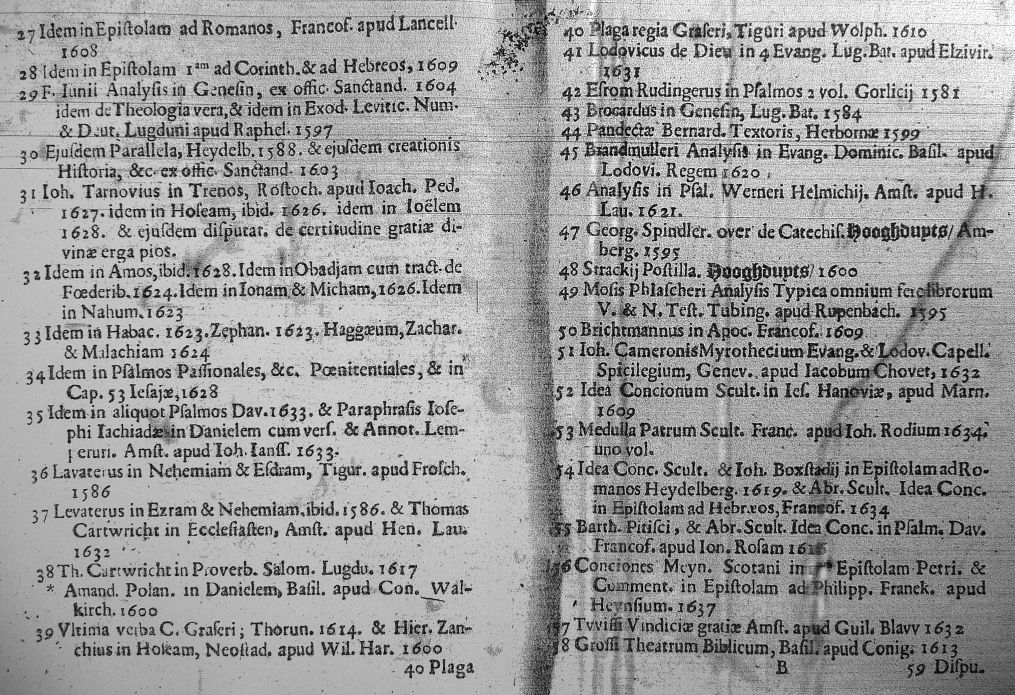 27 Idem in Epistolam ad Romanos, Francof. apud Lancell.
1608
28 Idem in Epistolam 1am ad Corinth. & ad Hebreos, 1609
29 F. Iunii Analysin in Genesin, ex offic. Sanctand. 1604
idem de Theologia vera, & idem in Exod. Levitic. Num.
& Deut. Lugduni apud Raphel. 1597
30 Ejusdem Parallela, Heydelb. 1588. & ejusdem creationis
Historia, &c. ex offic. Sanctand. 1603
31 Ioh. Tarnovius in Trenos, Rostoch. apud Ioach. Ped.
1627. idem in Hoseam, ibid. 1626. idem in Ioëlem
1628. & ejusdem disputat. de certitudine gratiæ di-
vinæ erga pios.
32 Idem in Amos, ibid. 1628. Idem in Obadjam cum tract. de
Fœderib. 1624. Idem in Ionam & Micham, 1626. Idem
in Nahum. 1623
33 Idem in Habac. 1623. Zephan. 1623. Haggæum, Zachar.
& Malachiam 1624
34 Idem in Psalmos Passionales, &c. Pœnitentiales, & in
Cap. 53 Iesajæ, 1628
35 Idem in aliquot Psalmos Dav. 1633. & Paraphrasis Iose-
phi Iachiadæ in Danielem cum vers. & Annot. Lem-
peruri. Amst. apud Ioh. Ianss. 1633.
36 Lavaterus in Nehemiam & Esdram, Tigur. apud Frosch.
1586
37 Levaterus in Ezram & Nehemiam. ibid. 1586. & Thomas
Cartwricht in Ecclesiasten, Amst. apud Hen. Lau.
1632
38 Th. Cartwricht in Proverb. Salom. Lugdu. 1617
* Amand. Polan. in Danielem, Basil. apud Con. Wal-
kirch. 1600
39 Vltima verba C. Graseri; Thorun. 1614. & Hier. Zan-
chius in Hoseam, Neostad. apud Wil. Har. 1600
40 Plaga
40 Plaga regia Graseri, Tiguri apud Wolph. 1610
41 Lodovicus de Dieu in 4 Evang. Lug. Bat. apud Elzivir.
1631
42 Esrom Rudingerus in Psalmos 2 vol. Gorlicij 1581
43 Brocardus in Genesin, Lug. Bat. 1584
44 Pandectæ Bernard. Textoris, Herbornæ 1599
45 Brandmulleri Analysis in Evang. Dominic. Basil. apud
Lodovi. Regem 1620.
46 Analysis in Psal. Werneri Helmichij. Amst. apud H.
Lau. 1621.
47 Georg. Spindler. over de Catechis. Hooghduyts/ Am-
berg. 1595
48 Strackij Postilla. Hooghduyts/ 1600
49 Mosis Phlascheri Analysis Typica omnium fere librorum
V. & N. Test. Tubing. apud Rupenbach. 1595
50 Brichtmannus in Apoc. Francof. 1609
51 Ioh. Cameronis Myrothecium Evang. & Lodov. Capell.
Spicilegium, Genev. apud Iacobum Chovet, 1632
52 Idea Concionum Scult. in Ies. Hanoviæ, apud Marn.
1609
53 Medulla Patrum Scult. Franc. apud Ioh. Rodium 1634.
uno vol.
54 Idea Conc. Scult. & Ioh. Boxstadij in Epistolam ad Ro-
manos Heydelberg. 1619. & Abr. Scult. Idea Conc.
in Epistolam ad Hebræos, Francof. 1634
55 Barth. Pitisci, & Abr. Scult. Idea Conc. in Psalm. Dav.
Francof. apud Ion. Rosam
56 Conciones Meyn. Scotani in Epistolam Petri. &
Comment. in Epistolam ad Philipp. Franek. apud
Heynsium. 1637
57 Tvvissi Vindiciæ gratiæ Amst. apud Guil. Blavv 1632
58 Grossi Theatrum Biblicum, Basil. apud Conig. 1613
B 59 Dispu.